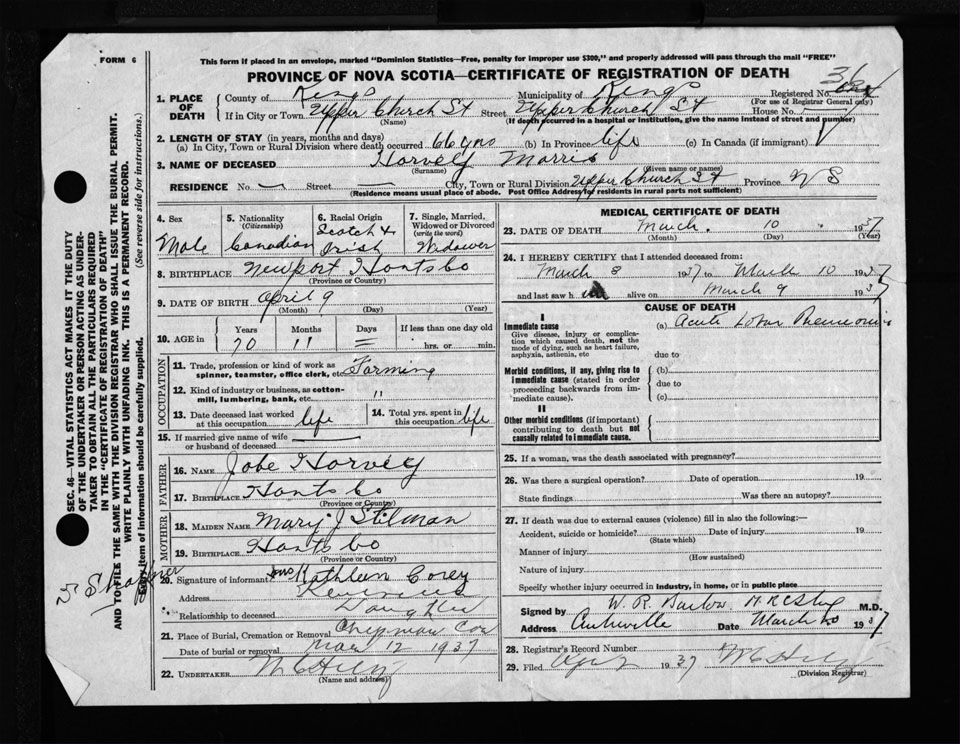 FORM 6
This form if placed in an envelope, marked "Dominion Statistics—Free, penalty for improper use $300," and properly addressed will pass through the mail "FREE"
PROVINCE OF NOVA SCOTIA—CERTIFICATE OF REGISTRATION OF DEATH
Registered No.
(For use of Registrar General only)
1. PLACE OF DEATH
County of Kings Municipality of Kings
If in City or Town Upper Church St Street Upper Church St House No.
(Name) (If death occurred in a hospital or institution, give the name instead of street and number)
2. LENGTH OF STAY (in years, months and days)
(a) In City, Town or Rural Division where death occurred 66 yrs (b) In Province life (c) In Canada (if immigrant)
3. NAME OF DECEASED Harvey Morris
(Surname) (Given name or names)
RESIDENCE No. — Street — City, Town or Rural Division Upper Church St Province N S
(Residence means usual place of abode. Post Office Address for residents in rural parts not sufficient)
4. Sex Male
5. Nationality (Citizenship) Canadian
6. Racial Origin Scotch & Irish
7. Single, Married, Widowed or Divorced (write the word) Widower
8. BIRTHPLACE Newport Hants Co
(Province or Country)
9. DATE OF BIRTH April 9
(Month) (Day) (Year)
10. AGE in
Years Months Days If less than one day old
70 11 = hrs. or min.
OCCUPATION
11. Trade, profession or kind of work as spinner, teamster, office clerk, etc. Farming
12. Kind of industry or business, as cotton-mill, lumbering, bank, etc. "
13. Date deceased last worked at this occupation life
14. Total yrs. spent in this occupation life
15. If married give name of wife or husband of deceased
FATHER
16. NAME Jobe Harvey
17. BIRTHPLACE Hants Co
(Province or Country)
MOTHER
18. MAIDEN NAME Mary J Stilman
19. BIRTHPLACE Hants Co
(Province or Country)
20. Signature of informant Mrs Kathleen Corey
Address
Relationship to deceased Daughter
21. Place of Burial, Cremation or Removal Chipman Cor
Date of burial or removal Mar 12 1937
22. UNDERTAKER
(Name and address)
MEDICAL CERTIFICATE OF DEATH
23. DATE OF DEATH March 10 1937
(Month) (Day) (Year)
24. I HEREBY CERTIFY that I attended deceased from:
March 8 1937 to March 10 1937
and last saw h im alive on March 9 1937
CAUSE OF DEATH
I
Immediate cause (a) Acute Lobar Pneumonia
Give disease, injury or complication which caused death, not the mode of dying, such as heart failure, asphyxia, asthenia, etc due to
Morbid conditions, if any, giving rise to immediate cause (stated in order proceeding backwards from immediate cause). (b) due to (c)
II
Other morbid conditions (if important) contributing to death but not causally related to immediate cause.
25. If a woman, was the death associated with pregnancy?
26. Was there a surgical operation? Date of operation 19
State findings Was there an autopsy?
27. If death was due to external causes (violence) fill in also the following:—
Accident, suicide or homicide? Date of injury 19
(State which)
Manner of injury
(How sustained)
Nature of injury
Specify whether injury occurred in industry, in home, or in public place
Signed by M.D.
Address Date March 1937
28. Registrar's Record Number
29. Filed 1937
(Division Registrar)
SEC. 46—VITAL STATISTICS ACT MAKES IT THE DUTY
OF THE UNDERTAKER OR PERSON ACTING AS UNDER-
TAKER TO OBTAIN ALL THE PARTICULARS REQUIRED
IN THE "CERTIFICATE OF REGISTRATION OF DEATH"
AND TO FILE THE SAME WITH THE DIVISION REGISTRAR WHO SHALL ISSUE THE BURIAL PERMIT.
WRITE PLAINLY WITH UNFADING INK. THIS IS A PERMANENT RECORD.
Every item of information should be carefully supplied. (See reverse side for instructions.)